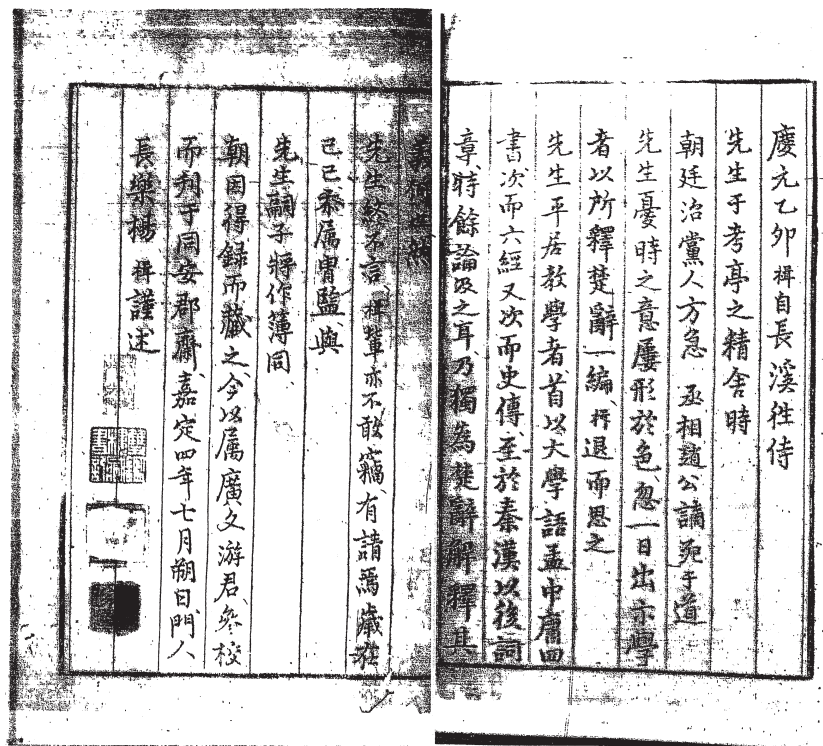 慶元乙卯楫自長溪徃侍
先生于考亭之精舍時
朝廷治黨人方急丞相趙公謫死于道
先生憂時之意屢形於色忽一日出示學
者以所釋楚辭一編楫退而思之
先生平居教學者首以大學語孟中庸四
書次而六經又次而史傳至於秦漢以後詞
章特餘論及之耳乃獨為楚辭解釋其
義何也然
先生終不言楫輩亦不敢竊有請焉歲在
己巳忝属胄監與
先生嗣子將作簿同
朝因得録而藏之今以属廣文游君參校
而刊于同安郡齋嘉定四年七月朔日門人
長樂楊楫謹述